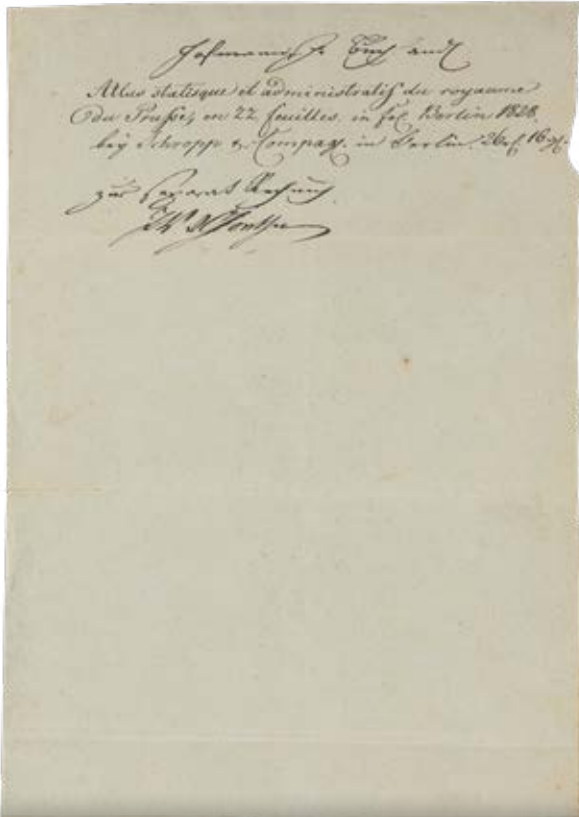 Hofmann'sche Buchandl
Atlas statisque et administratif du royaume
du Prusse, en 22 feuilles. in fol. Berlin 1828.
bey Schropp & Compag. in Berlin. 26 rl. 16 gl.
zur separat Rechnung.